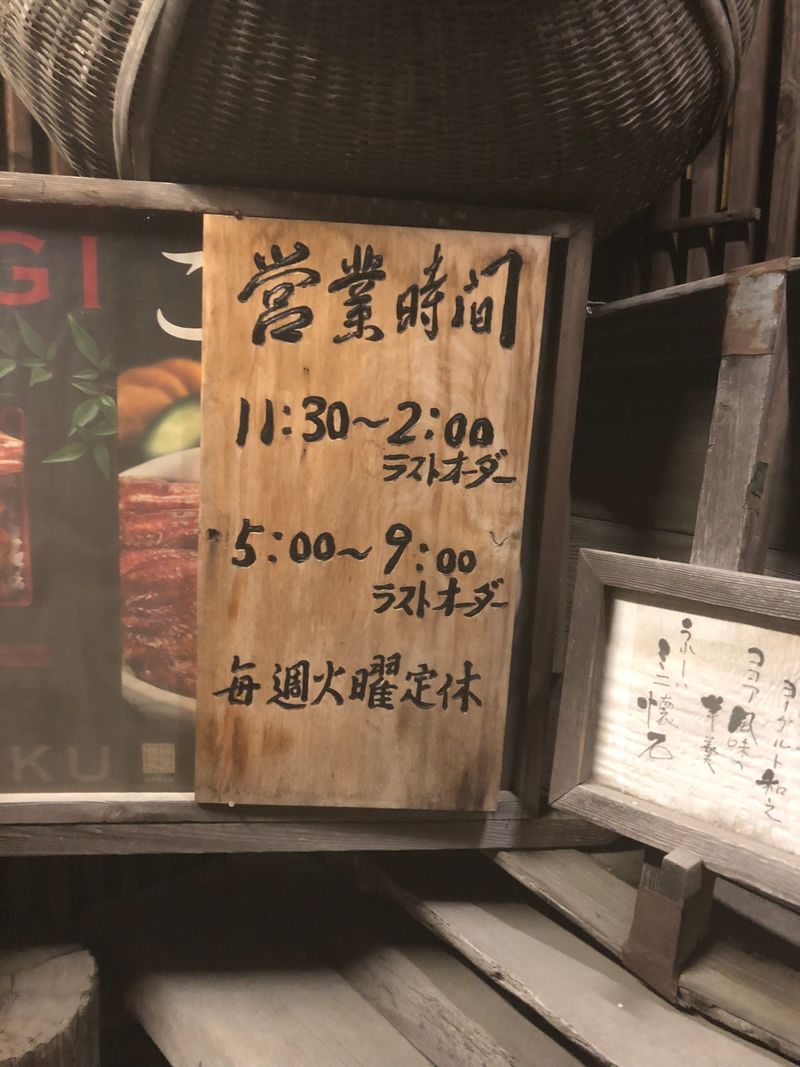 GI
営業時間
11:30～2:00
ラストオーダー
5:00～9:00
ラストオーダー
毎週火曜定休
KU
ヨーグルト和え
ココア風味の
羊羹
うれしい
ミニ懐石